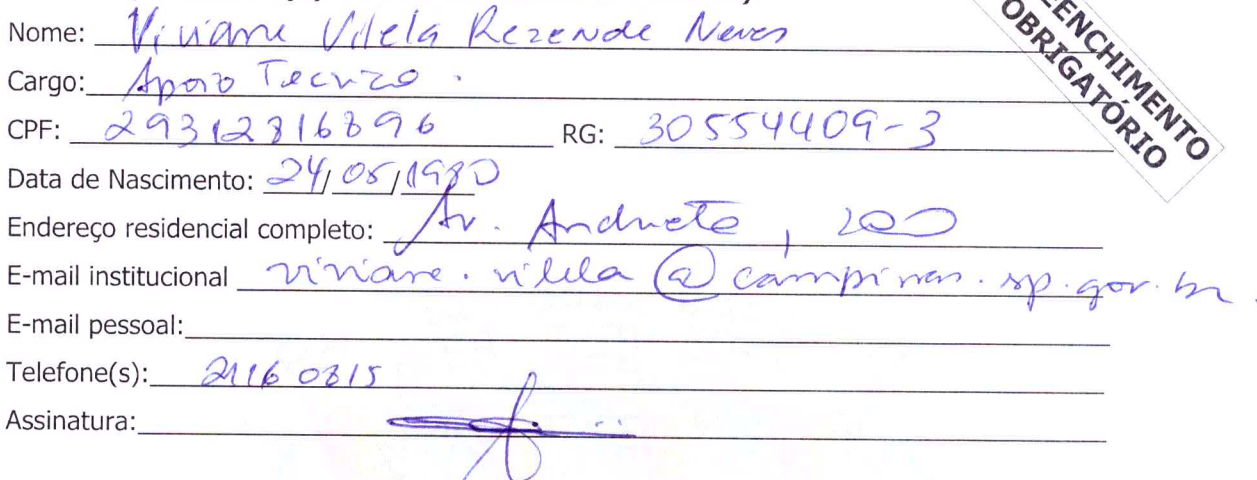 Nome: Viviane Vilela Rezende Neves
Cargo: Apoio Tecnico.
CPF: 29312816896 RG: 30554409-3
Data de Nascimento: 24/05/1980
Endereço residencial completo: Av. Andrueta, 200
E-mail institucional viviane.vilela@campinas.sp.gov.br.
E-mail pessoal:
Telefone(s): 2116 0815
Assinatura:
OBRIGATÓRIO